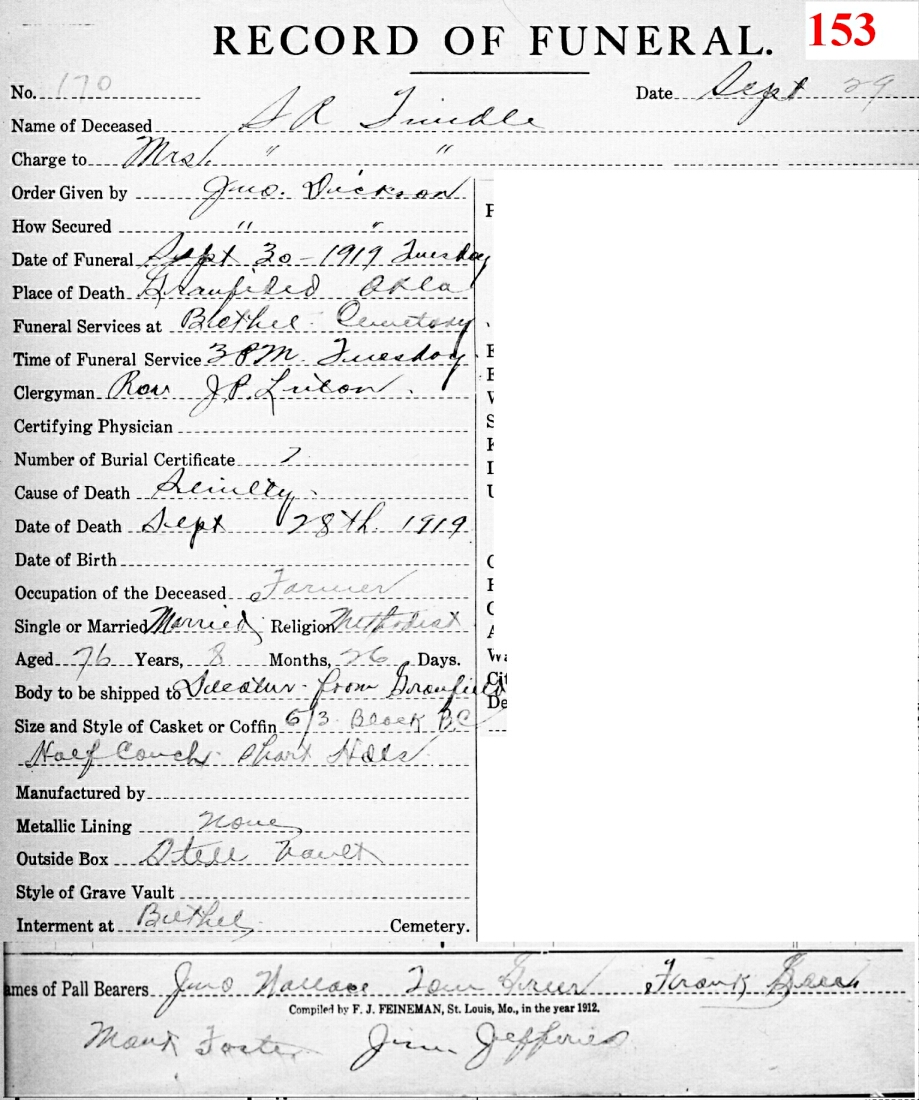 RECORD OF FUNERAL.
153
No. 170 Date Sept 29
Name of Deceased S R Tindle
Charge to Mrs. " "
Order Given by Jno. Dickson
How Secured " "
Date of Funeral Sept 30 - 1919 Tuesday
Place of Death Granfield Okla
Funeral Services at Bethel Cemetery
Time of Funeral Service 3 PM. Tuesday
Clergyman J. P.
Certifying Physician
Number of Burial Certificate
Cause of Death
Date of Death Sept 28th 1919
Date of Birth
Occupation of the Deceased Farmer
Single or Married Married Religion Methodist
Aged 76 Years, 8 Months, 26 Days.
Body to be shipped to Decatur from Granfield
Size and Style of Casket or Coffin 6/3 Black BC
Half Couch
Manufactured by
Metallic Lining None
Outside Box Steel Vault
Style of Grave Vault
Interment at Bethel Cemetery.
ames of Pall Bearers Jno Wallace Tom Greer Frank
Compiled by F. J. FEINEMAN, St. Louis, Mo., in the year 1912.
Mark Foster Jim Jefferies